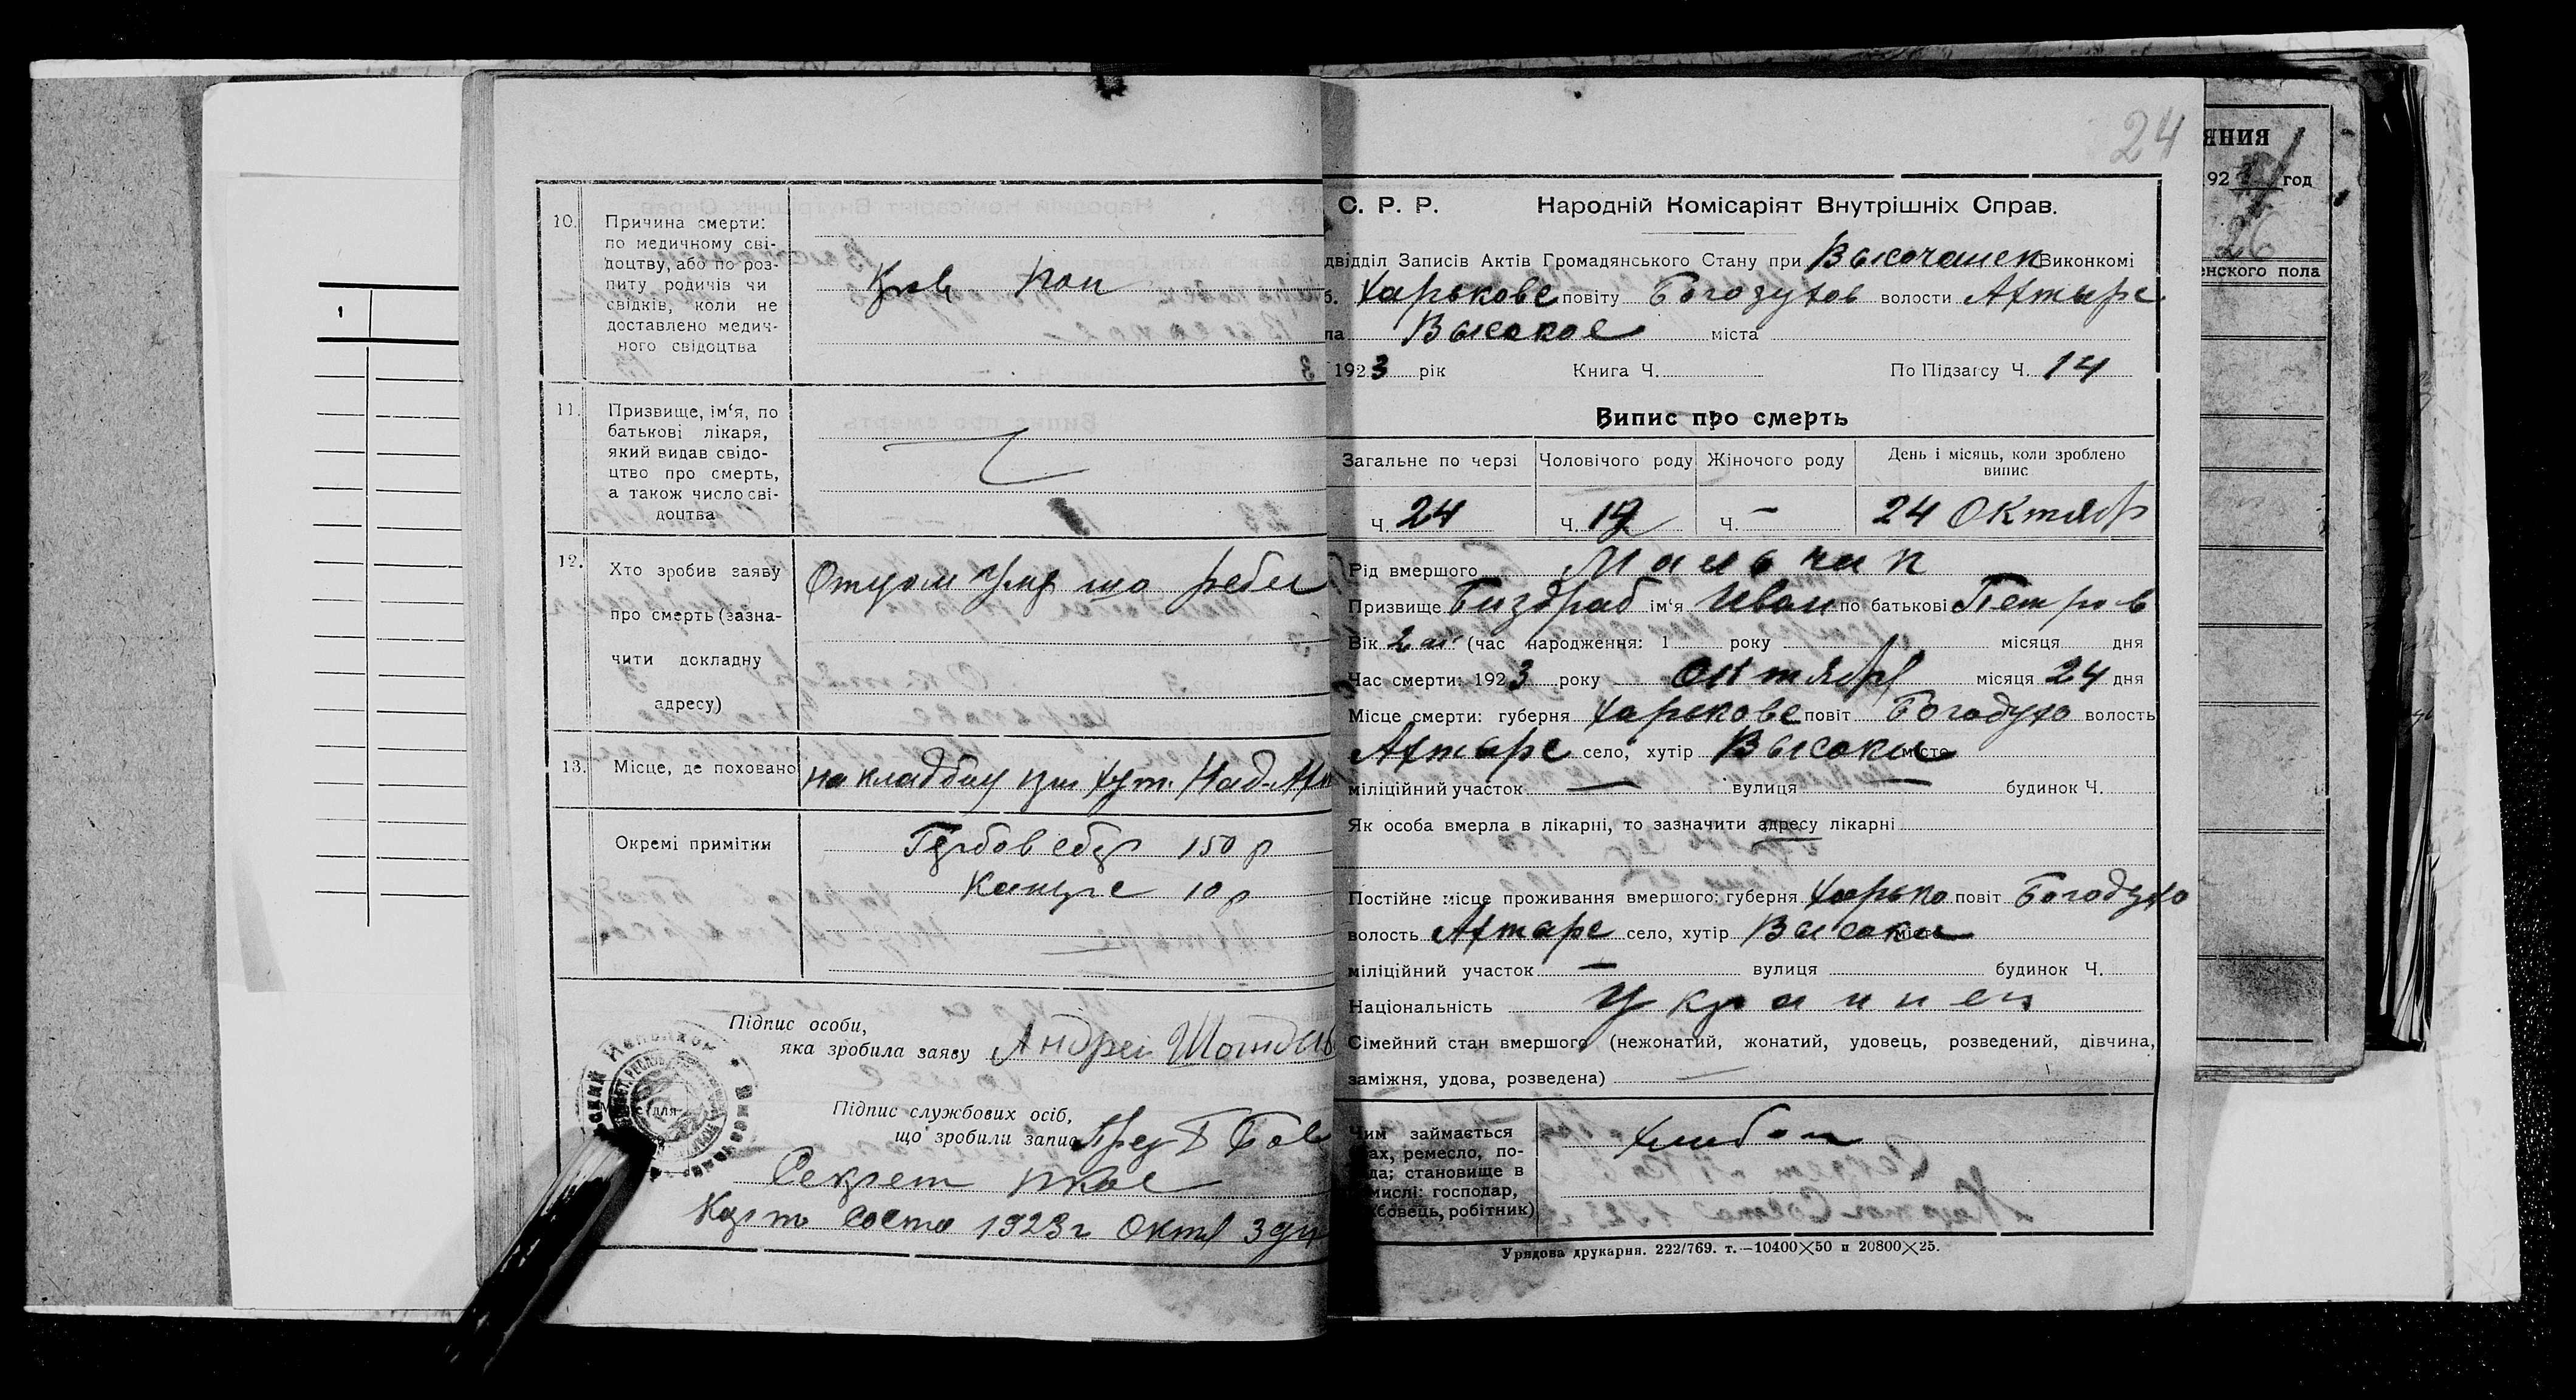 10. Причина смерти:
по медичному сві-
доцтву, або по роз-
питу родичів чи
свідків, коли не
доставлено медич-
ного свідоцтва
Кров пон
11. Призвище, ім‘я, по
батькові лікаря,
який видав свідо-
цтво про смерть,
а також число сві-
доцтва
12. Хто зробив заяву
про смерть (зазна-
чити докладну
адресу)
Отцом
13. Місце, де поховано
на кладбищ при хут.
Окремі примітки
Гербов сбор 150 р
Канцле 10 р
Підпис особи,
яка зробила заяву Андрей
Підпис службових осіб,
що зробили запис
Секрет
1923 г Октя 3 дня
24
С. Р. Р. Народній Комісаріят Внутрішніх Справ.
двідділ Записів Актів Громадянського Стану при Высочанск Виконкомі
б. Харькове повіту Богодухов волости Ахтыре
ла Высокое міста
1923 рік Книга Ч. По Підзагсу Ч. 14
Випис про смерть
Загальне по черзі Чоловічого роду Жіночого роду День і місяць, коли зроблено
випис
Ч. 24 Ч. 12 Ч. - 24 Октябр
Рід вмершого Мальчик
Призвище ім‘я Иван по батькові Петров
Вік 2 м (час народження: 1 року місяця дня
Час смерти: 1923 року Октябр місяця 24 дня
Місце смерти: губерня Харькове повіт Богодухо волость
Ахтыре село, хутір Высоки місто
міліційний участок вулиця будинок Ч.
Як особа вмерла в лікарні, то зазначити адресу лікарні
Постійне місце проживання вмершого: губерня Харько повіт Богодухо
волость Ахтыре село, хутір Высоки
міліційний участок — вулиця будинок Ч.
Національність Украинец
Сімейний стан вмершого (нежонатий, жонатий, удовець, розведений, дівчина,
заміжня, удова, розведена)
Чим займається
ах, ремесло, по-
да; становище в
мислі: господар,
бовець, робітник)
Хлибоп
Урядова друкарня. 222/769. т.—10400×50 и 20800×25.
яния
1923 год
26
енского пола
1